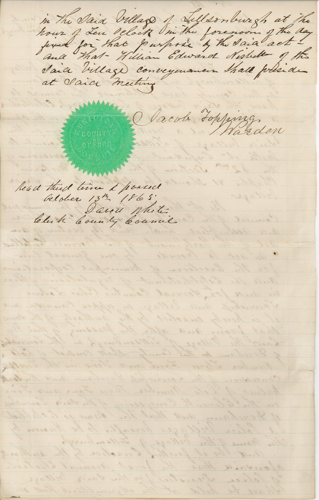 in the said Village of Tillsonburgh at the
hour of Ten O'clock in the forenoon of the day
fixed for that purpose by the said act –
and That William Edward Nisbett of the
Said Village conveyancer shall preside
at Said Meeting
Jacob Topping
Warden
COUNTY
OXFORD
Read third time & passed
October 13th 1865
James White
Clerk County Council